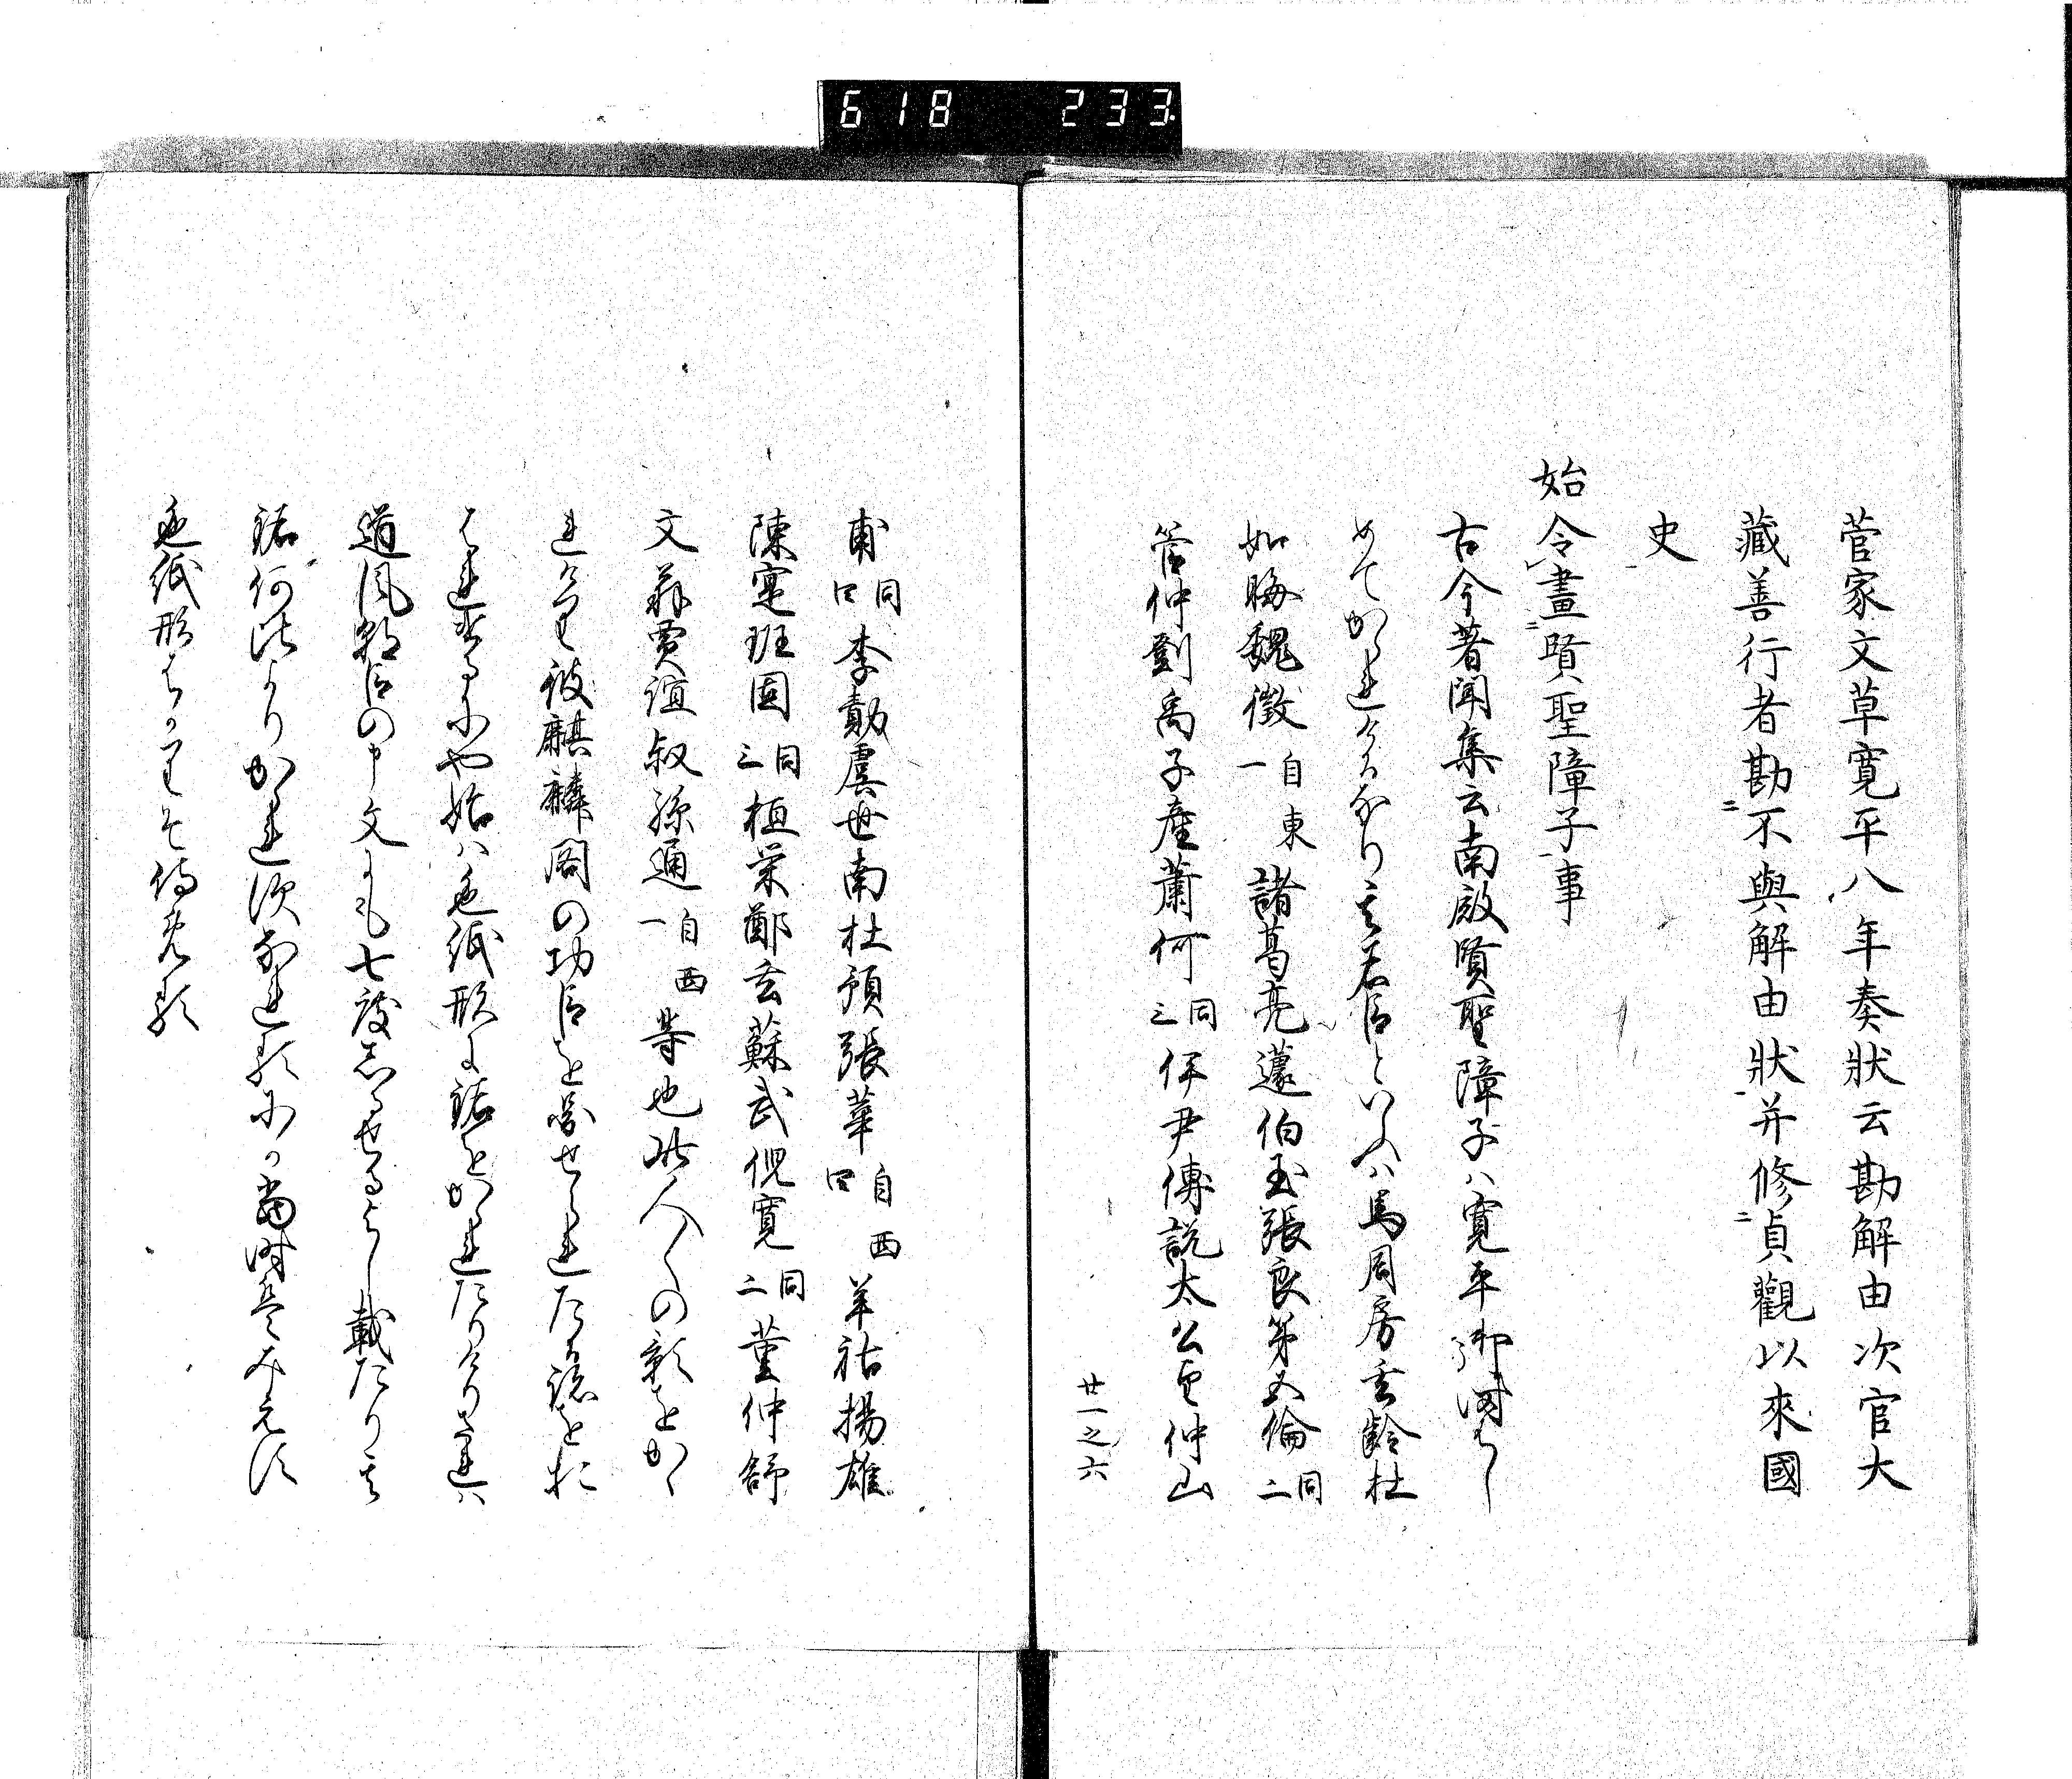 618 233
菅家文草寛平八年奏状云勘解由次官大
藏善行者勘不與解由狀并修貞觀以來國
史
始令畫賢聖障子事
古今著聞集云南殿賢聖障子ハ寛平御時はし
めてかゝれけるなり其名臣といふハ馬周房玄齡杜
如晦魏徵自東一諸葛亮蘧伯玉張良第五倫同二
管仲劉禹子產蕭何同三伊尹傅說太公望仲山
廿一之六
甫同四李勣虞世南杜預張華自西四羊祜揚雄
陳寔班固同三桓榮鄭玄蘇武倪寬同二董仲舒
文翁賈誼叔孫通自西一等也此人〻の影をかゝ
れける彼麒麟閣の功臣を圖せられたる跡をお
はれけるにや始ハ色紙形に銘をかゝれたりけりされハ
道風朝臣の申文にも七度しるせるよし載たり其
銘何比よりかゝれさなれるにか當時はみえす
色紙形はかりそ侍める